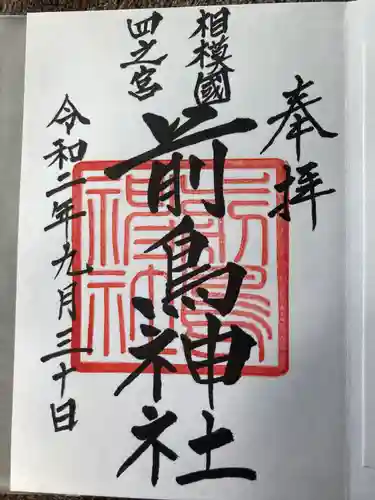 奉拝
相模國
四之宮
前鳥神社
前鳥神社
令和二年九月三十日